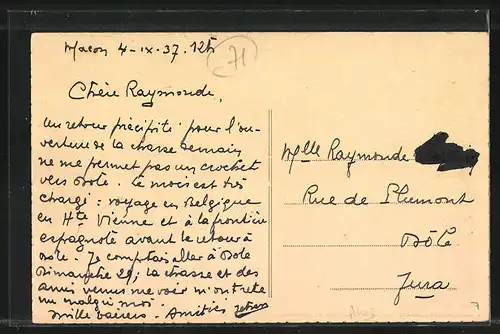 Macon 4-IX-37. 12h
71
Chère Raymonde,
Un retour précipité pour l'ou-
verture de la chasse demain
ne me permet pas un crochet
vers Dole. Le mois est très
chargé : voyage en Belgique
en Hte Vienne et à la frontière
espagnole avant le retour à
Dole. Je comptais aller à Dole
Dimanche 29; la chasse et des
amis venus me voir m'ont rete
nu malgré moi.
Mille baisers. Amitiés
Mlle Raymonde
Rue de Plumont
Dôle
Jura